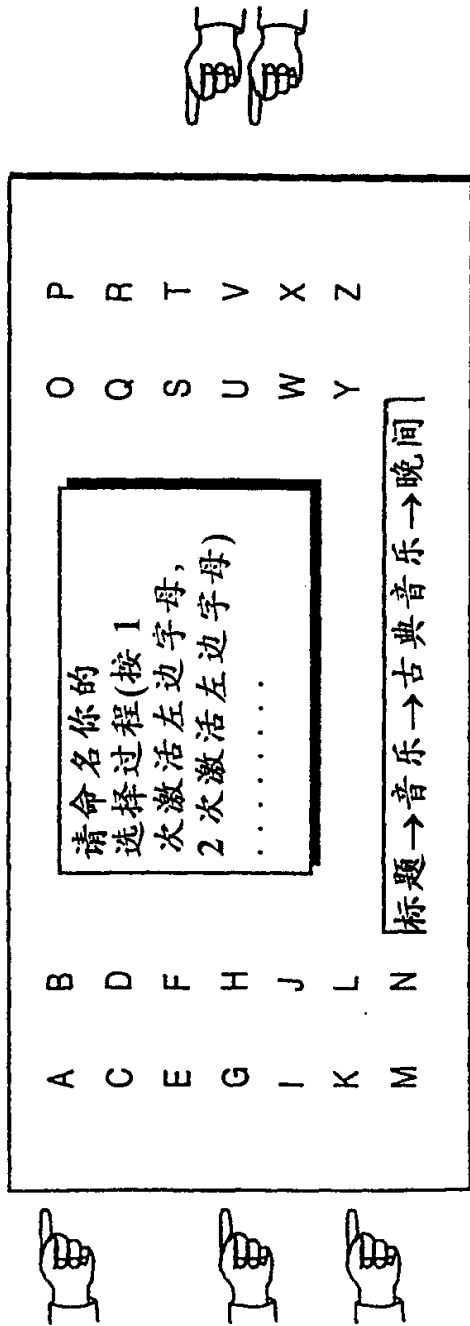 A B
C D
E F
G H
I J
K L
M N
请命名你的
选择过程(按 1
次激活左边字母,
2 次激活左边字母)
. . . . . . . . .
O P
Q R
S T
U V
W X
Y Z
标题→音乐→古典音乐→晚间